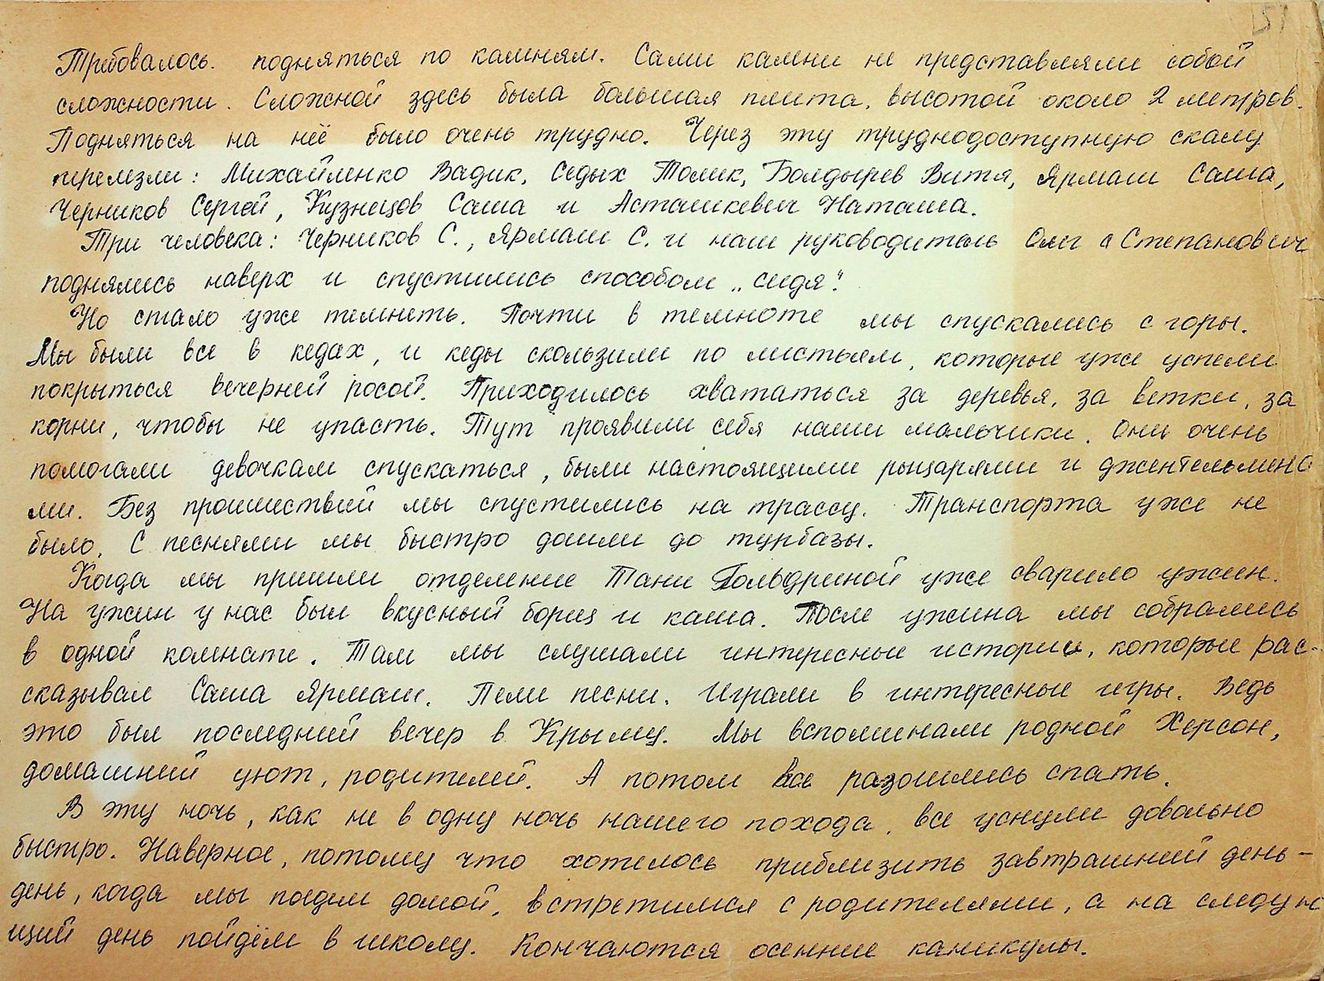 151
Требовалось. подняться по камням. Сами камни не представляли собой
сложности. Сложной здесь была большая плита, высотой около 2 метров.
Подняться на неё было очень трудно. Через эту труднодоступную скалу
перелезли: Михайленко Вадик, Седых Толик, Болдырев Витя, Ярмаш Саша,
Черников Сергей, Кузнецов Саша и Асташкевич Наташа.
Три человека: Черников С., Ярмаш С. и наш руководитель Олег Степанович
поднялись наверх и спустились способом „сидя".
Но стало уже темнеть. Почти в темноте мы спускались с горы.
Мы были все в кедах, и кеды скользили по листьям, которые уже успели
покрыться вечерней росой. Приходилось хвататься за деревья, за ветки, за
корни, чтобы не упасть. Тут проявили себя наши мальчики. Они очень
помогали девочкам спускаться, были настоящими рыцарями и джентельмена
ми. Без проишествий мы спустились на трассу. Транспорта уже не
было. С песнями мы быстро дошли до турбазы.
Когда мы пришли отделение Тани Гольдриной уже сварило ужин.
На ужин у нас был вкусный борщ и каша. После ужина мы собрались
в одной комнате. Там мы слушали интересные истории, которые рас-
сказывал Саша Ярмаш. Пели песни. Играли в интересные игры. Ведь
это был последний вечер в Крыму. Мы вспоминали родной Херсон,
домашний уют, родителей. А потом все разошлись спать.
В эту ночь, как не в одну ночь нашего похода, все уснули довольно
быстро. Наверное, потому что хотелось приблизить завтрашний день-
день, когда мы поедем домой, встретимся с родителями, а на следую
щий день пойдём в школу. Кончаются осенние каникулы.